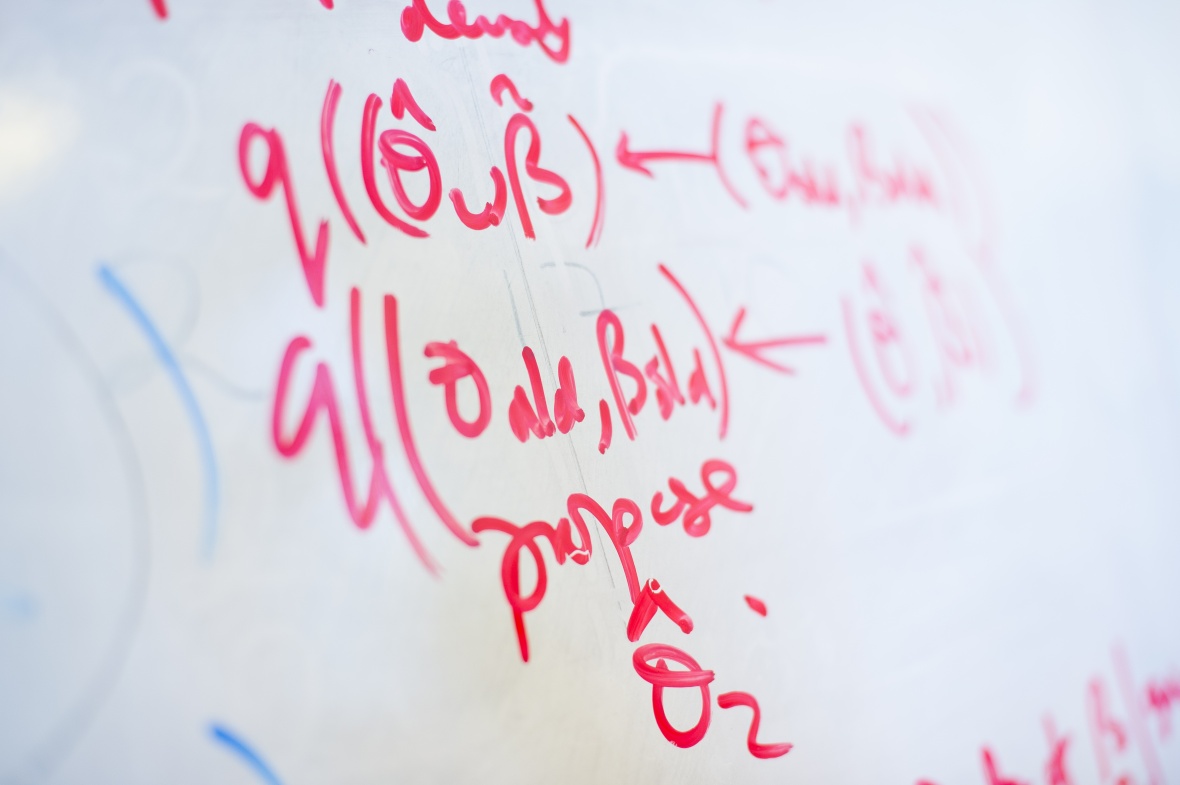 q((θ̂, β̃) ← (θold, βold))
q((θold, βold) ← (θ̂, β̃)
propose
θ̂2